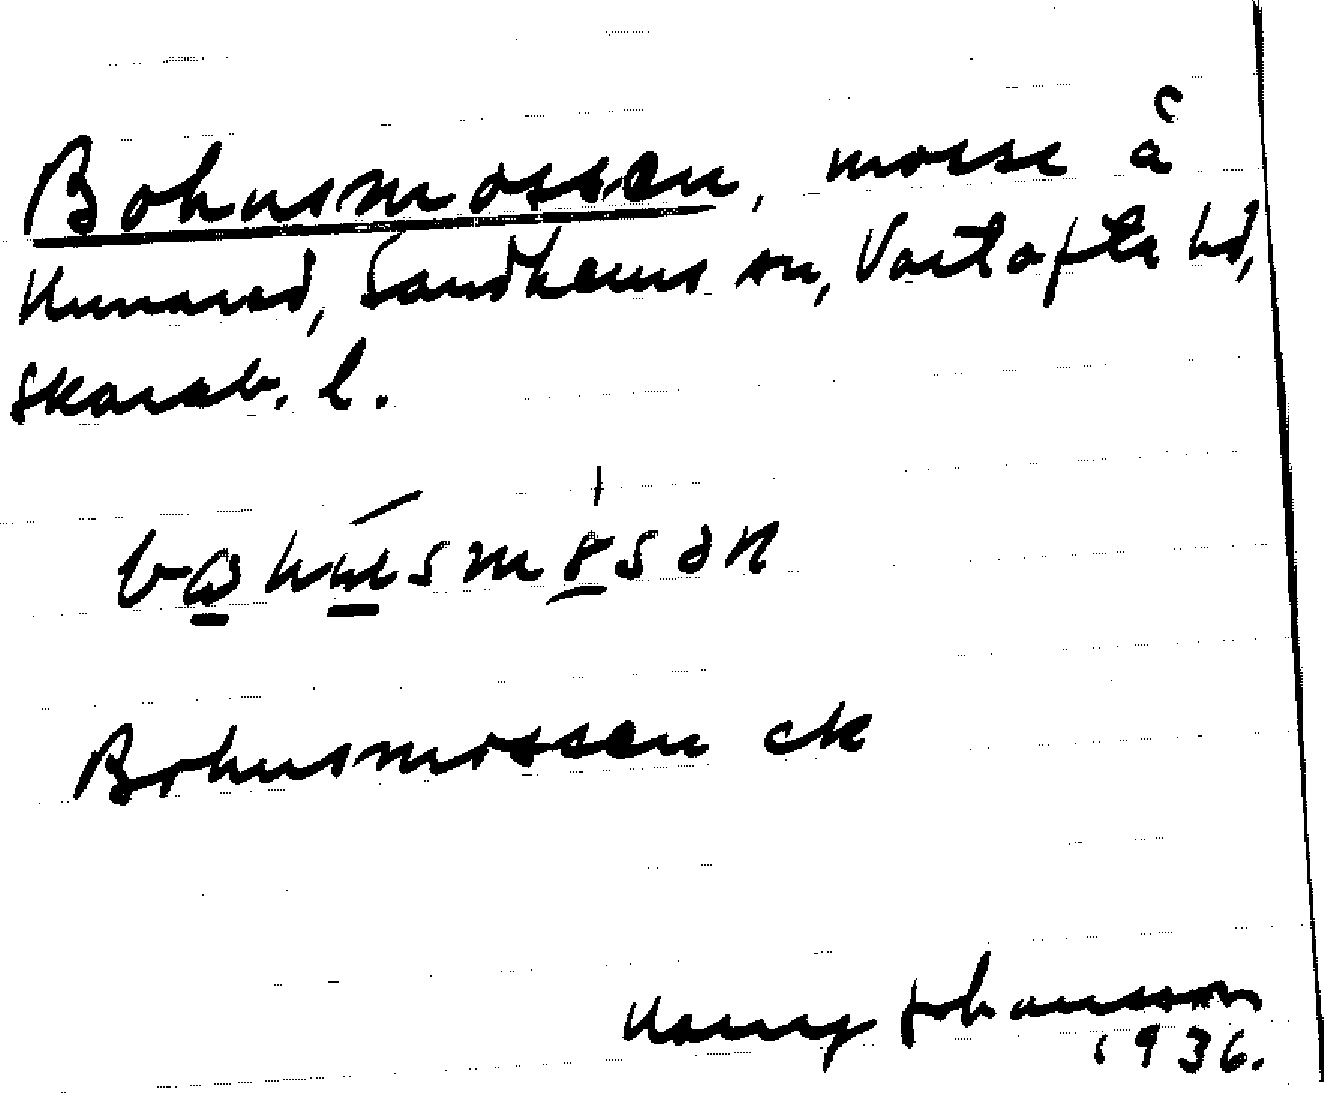 Bohusmossen, mosse å
Hunared, Sandhems sn, Vartofta hd,
Skarab. l.
Bohusmossen ek
Harry Johansson
1936.